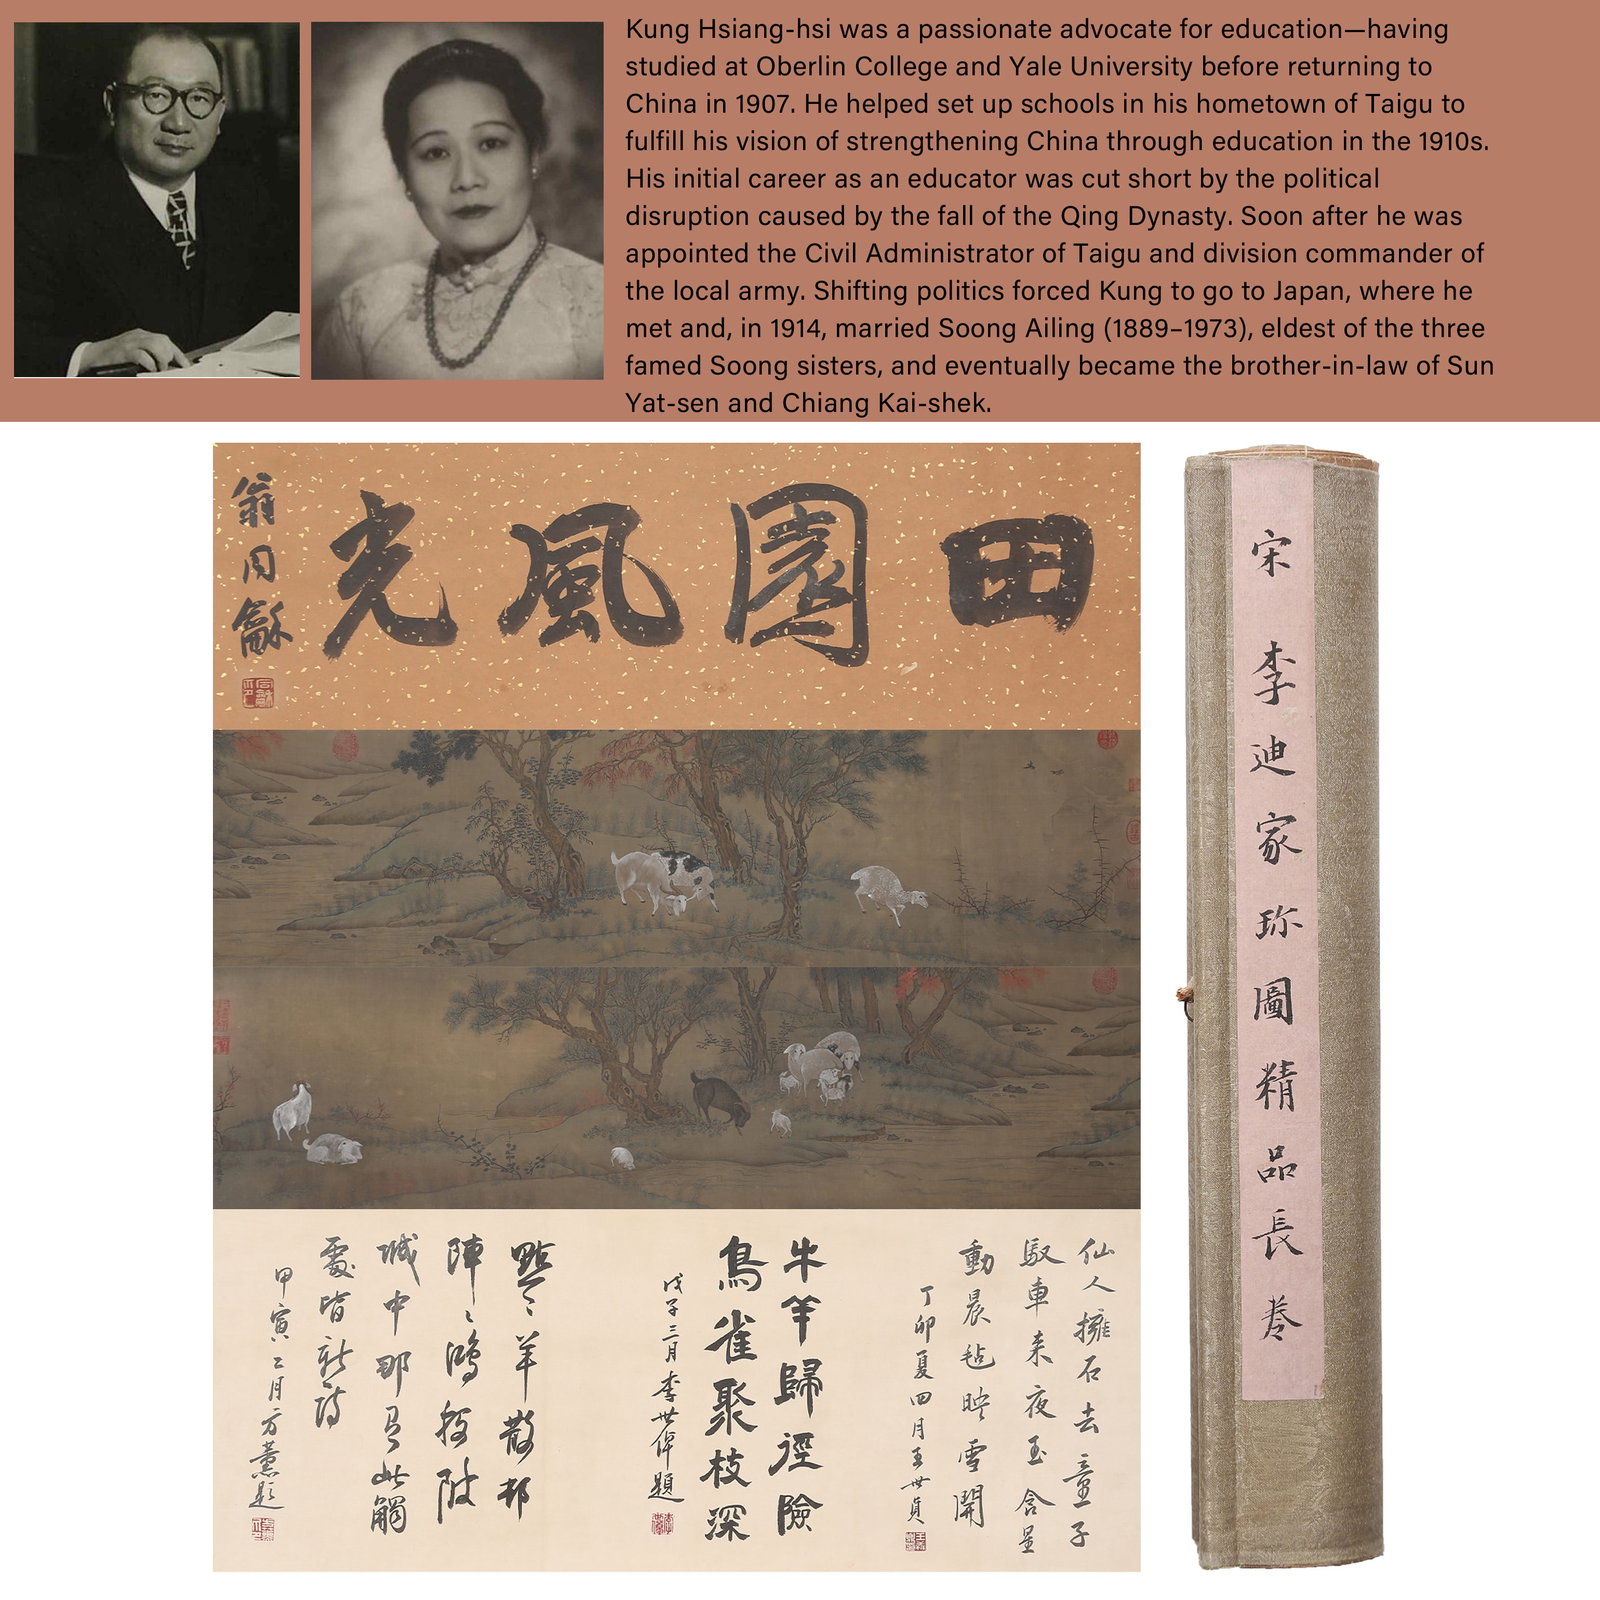 Kung Hsiang-hsi was a passionate advocate for education—having
studied at Oberlin College and Yale University before returning to
China in 1907. He helped set up schools in his hometown of Taigu to
fulfill his vision of strengthening China through education in the 1910s.
His initial career as an educator was cut short by the political
disruption caused by the fall of the Qing Dynasty. Soon after he was
appointed the Civil Administrator of Taigu and division commander of
the local army. Shifting politics forced Kung to go to Japan, where he
met and, in 1914, married Soong Ailing (1889–1973), eldest of the three
famed Soong sisters, and eventually became the brother-in-law of Sun
Yat-sen and Chiang Kai-shek.
田園風光
翁同龢
宋李迪家珎圖精品長卷
仙人擁石去童子
馭車来夜玉含星
動晨毡映雪開
丁卯夏四月王世貞
牛羊歸徑險
鳥雀聚枝深
戊子三月李世倬題
點〻羊散邨
陣〻鴻投陂
城中那有此觸
處皆新詩
甲寅二月方薰題